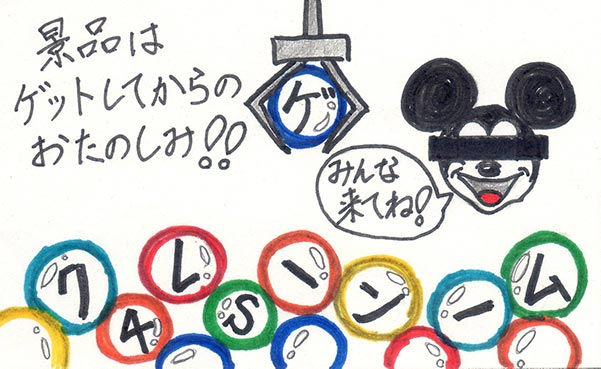 景品は
ゲットしてからの
おたのしみ!!
ゲ
みんな
来てね!
クレーンーム
4S